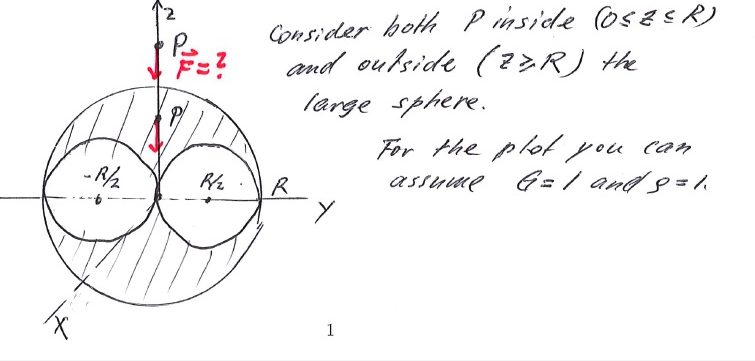 z
P
F=?
P
-R/2
R/2
R
Y
X
Consider both P inside (0≤z≤R)
and outside (z≥R) the
large sphere.
For the plot you can
assume G=1 and ρ=1.
1